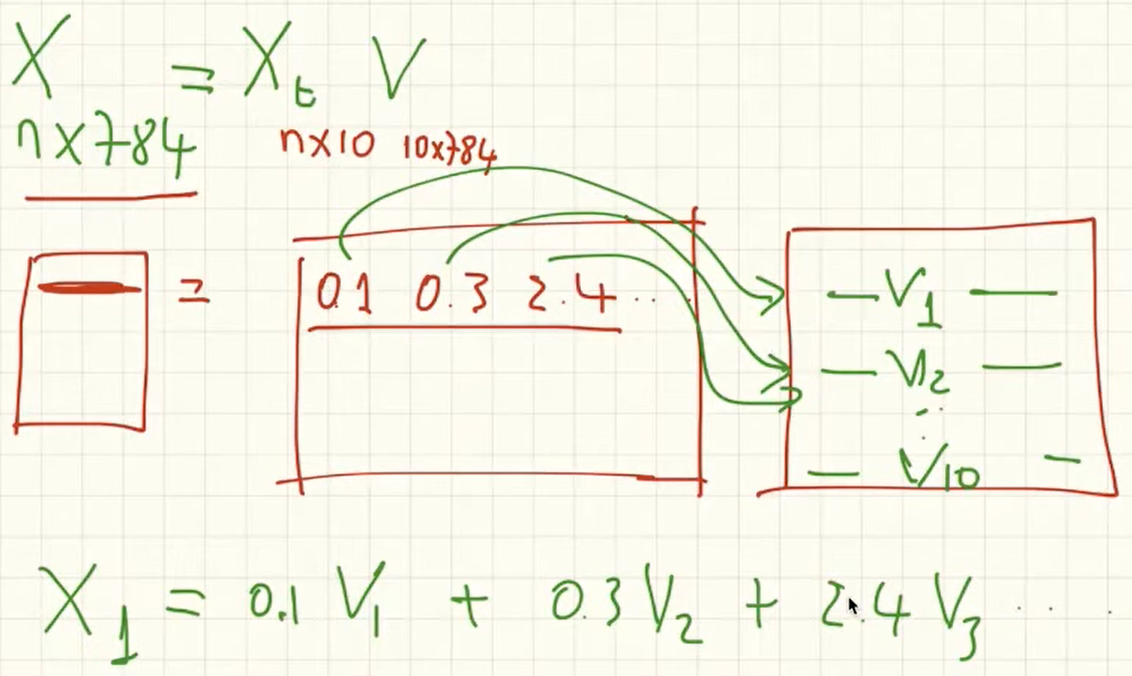 X = X_t V
n×784 n×10 10×784
= 0.1 0.3 2.4 ... — V_1 —
— V_2 —
⋮
— V_10 —
X_1 = 0.1 V_1 + 0.3 V_2 + 2.4 V_3 ...